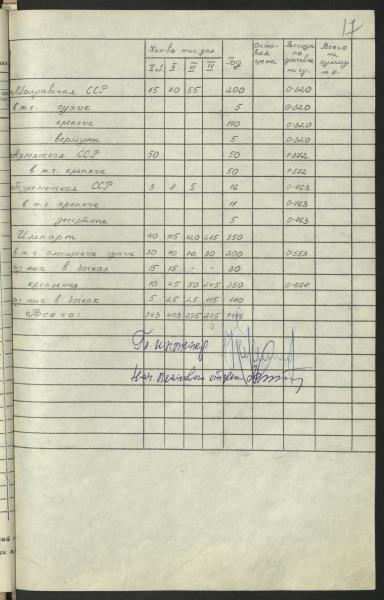 17
Кол-во тыс. дал Год Опто-вая цена Расходы по доставке на ед. Всего на сумму т.р.
I кв. II III IV
Молдавская ССР 75 70 55 200 0-320
в т.ч. сухие 5 0-320
крепкие 190 0-320
вермуты 5 0-320
Армянская ССР 50 50
в т.ч. крепкие 50
Туркменская ССР 3 8 5 16 0-463
в т.ч. крепкие 11 0-463
десертные 5 0-463
Импорт 40 115 120 275 550
в т.ч. сухие 200 0-553
из них в бочках 15 15 - - 30
крепленые 10 45 50 245 350
из них в бочках 5 25 25 115 170
Всего: 343 403 395
Гл. инженер
Нач. планового отдела